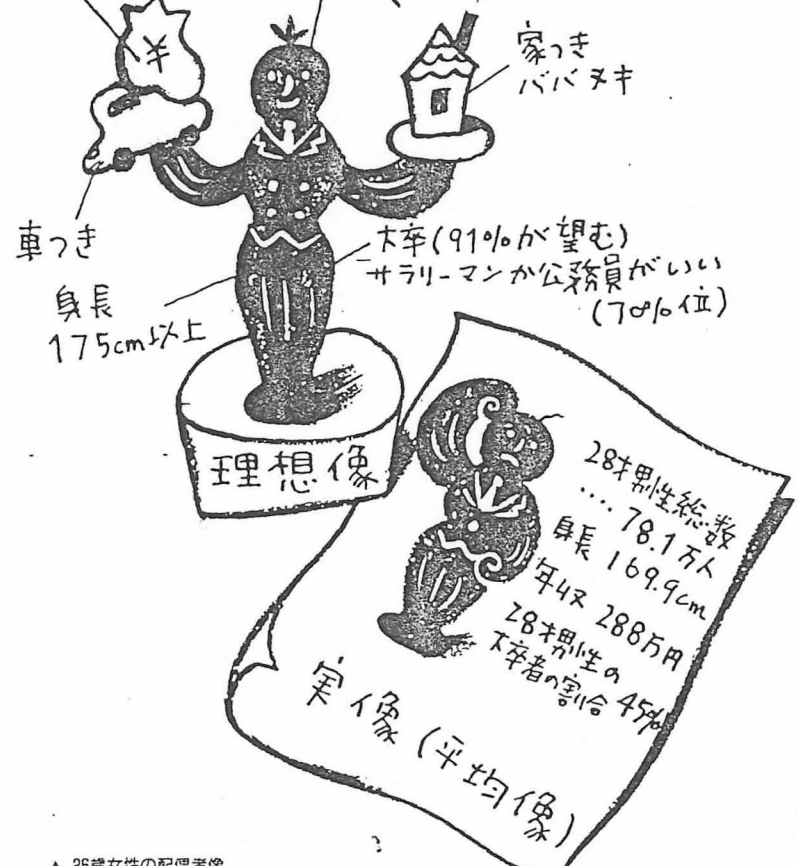 ¥
家つき
ババヌキ
車つき
大卒(91%が望む)
サラリーマンか公務員がいい
(70%位)
身長
175cm以上
理想像
28才男性総数
‥‥78.1万人
身長 169.9cm
年収 288万円
28才男性の
大卒者の割合 45%
実像(平均像)
▲ 26歳女性の配偶者像